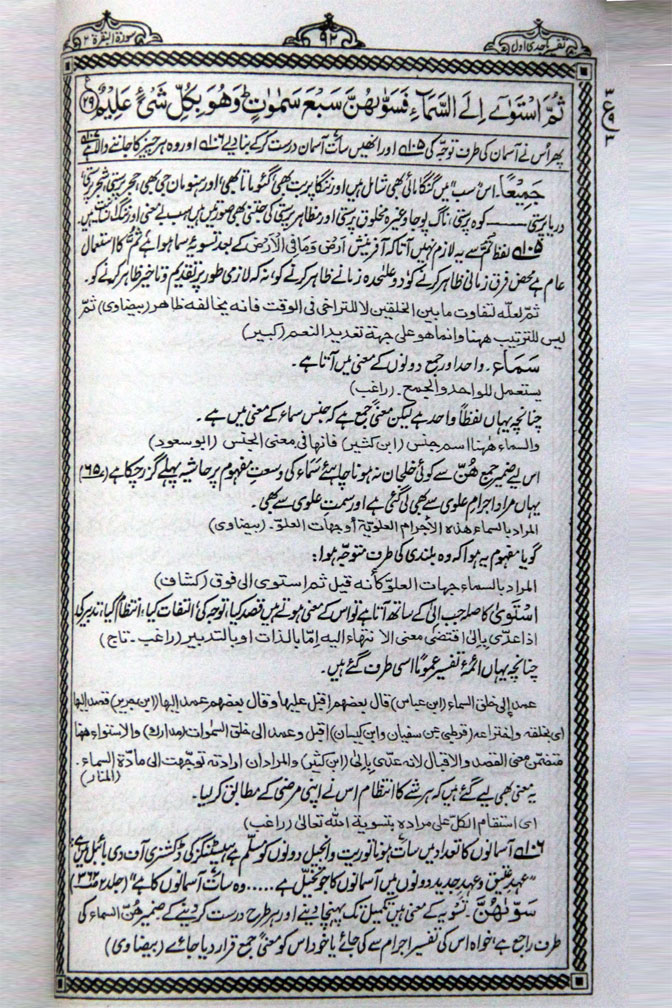 تفسیر ماجدی اول
۹۲
سورۃ البقرۃ ۲
ثُمَّ اسْتَوٰٓى اِلَى السَّمَآءِ فَسَوّٰىهُنَّ سَبْعَ سَمٰوٰتٍ ؕ وَهُوَ بِكُلِّ شَىْءٍ عَلِيْمٌ ﴿۲۹﴾
پھر اُس نے آسمان کی طرف توجّہ کی ۱۰۵ اور انھیں سات آسمان درست کرکے بنا دیے ۱۰۶ اور وہ ہر چیز کا جاننے والا ہے ۱۰۷
جَمِیْعًا۔ اس سب میں گنگا مائی بھی شامل ہیں اور ننگا پربت بھی گئوماتا بھی، اور ہنومان جی بھی، حجر پرستی، شجر پرستی،
دریا پرستی ــــــ کوہ پرستی، ناگ پوجا وغیرہ مخلوق پرستی اور مظاہر پرستی کی جتنی بھی صورتیں ہیں سب بے معنی اور ننگ انسانیت ہیں۔
۱۰۵ لفظ ثُمَّ سے یہ لازم نہیں آتا کہ آفرینش اَرض وَمَا فِی الْاَرْضِ کے بعد تسویۂ سما ہوا ہے ثُمَّ کا استعمال
عام ہے محض فرق زمانی ظاہر کرنے کو، دو علیٰحدہ زمانے ظاہر کرنے کو، نہ کہ لازمی طور پر تقدیم و تاخیر ظاہر کرنے کو۔
ثمّ لعلّه لتفاوت ما بین الخلقین لا للتراخی فی الوقت فانه یخالفه ظاهر (بیضاوی) ثمّ
لیس للترتیب ههنا وانما هو علی جهة تعدید النعم (کبیر)
سَمَآء۔ واحد اور جمع دونوں کے معنی میں آتا ہے۔
یستعمل للواحد والجمع۔ (راغب)
چنانچہ یہاں لفظاً واحد ہے لیکن معنیً جمع ہے کہ جنس سماء کے معنی میں ہے۔
والسماء ههنا اسم جنس (ابن کثیر) فانها فی معنی الجنس (ابو سعود)
اس لیے ضمیر جمع هُنَّ سے کوئی خلجان نہ ہونا چاہئے سَماء کی وسعتِ مفہوم پر حاشیہ پہلے گزر چکا ہے (۶۵)
یہاں مراد اجرام علوی سے بھی لی گئی ہے اور سمت علوی سے بھی۔
المراد بالسماء هذه الاجرام العلویة أو جهات العلو۔ (بیضاوی)
گویا مفہوم یہ ہوا کہ وہ بلندی کی طرف متوجّہ ہوا:
المراد بالسماء جهات العلوّ کأنه قیل ثم استوی الی فوق (کشاف)
اسْتَوٰی کا صلہ جب الیٰ کے ساتھ آتا ہے تو اس کے معنی ہوتے ہیں قصد کیا، توجہ کی، التفات کیا، انتظام کیا، تدبیر کی
اذا عدّی بإلی اقتضی معنی الانتهاء الیه إمّا بالذات او بالتدبیر (راغب۔ تاج)
چنانچہ یہاں ائمۂ تفسیر عموماً اسی طرف گئے ہیں۔
عمد إلی خلق السماء (ابن عباس) قال بعضهم اقبل علیها وقال بعضهم عمد إلیها (ابن جریر) قصد إلیها
ای بخلقه واختراعه (قرطبی عن سفیان وابن کیسان) اقبل وعمد الی خلق السمٰوات (مدارک) والاستواء ههنا
متضمّن معنی القصد والاقبال لانه عدّی بإلی (ابن کثیر) والمراد ان ارادته توجّهت الی مادّة السماء۔
(المنار)
یہ معنی بھی لیے گئے ہیں کہ ہر شے کا انتظام اس نے اپنی مرضی کے مطابق کر لیا۔
ای استقام الکلّ علی مراده بتسویة الله تعالیٰ (راغب)
۱۰۶ آسمانوں کا تعداد میں سات ہونا توریت و انجیل دونوں کو مسلّم ہے، ہیسٹنگز کی ڈکشنری آف دی بائبل میں ہے:
"عہد عتیق و عہد جدید دونوں میں آسمانوں کا جو تخیّل ہے ..... وہ سات آسمانوں کا ہے" (جلد ۲ ص۳۲۲)
سَوّٰىهُنَّ۔ تسویہ کے معنی ہیں تکمیل تک پہنچا دینے اور ہر طرح درست کر دینے کے ضمیر هُنَّ السماء کی
طرف راجع ہے، خواہ اس کی تفسیر اجرام سے کی جائے یا خود اس کو معنیً جمع قرار دیا جائے (بیضاوی)